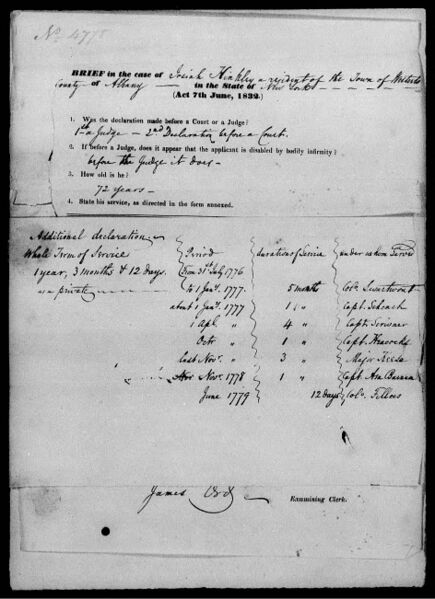 No. 4778
BRIEF in the case of Josiah Hinkley a resident of the Town of
County of Albany in the State of New York
(Act 7th June, 1832.)
1. Was the declaration made before a Court or a Judge?
1st a Judge – 2nd Declaration before a Court.
2. If before a Judge, does it appear that the applicant is disabled by bodily infirmity?
before the Judge it does –
3. How old is he?
72 years –
4. State his service, as directed in the form annexed.
Additional declaration
Whole Term of Service
1 year, 3 months & 12 days.
as a private
Period
from 31st July 1776
to 1 Jany. 1777.
about 1 Jany. 1777
1 Apl. "
Octr "
last Novr. "
Novr. 1778
June 1779
duration of Service
5 months
1 "
4 "
1 "
3 "
1 "
12 days
under whom served
Colo. Swartwout
Capt. Schenck
Capt. Scrivner
Capt.
Major
Capt. Asa
Colo.
James Ord
Examining Clerk.